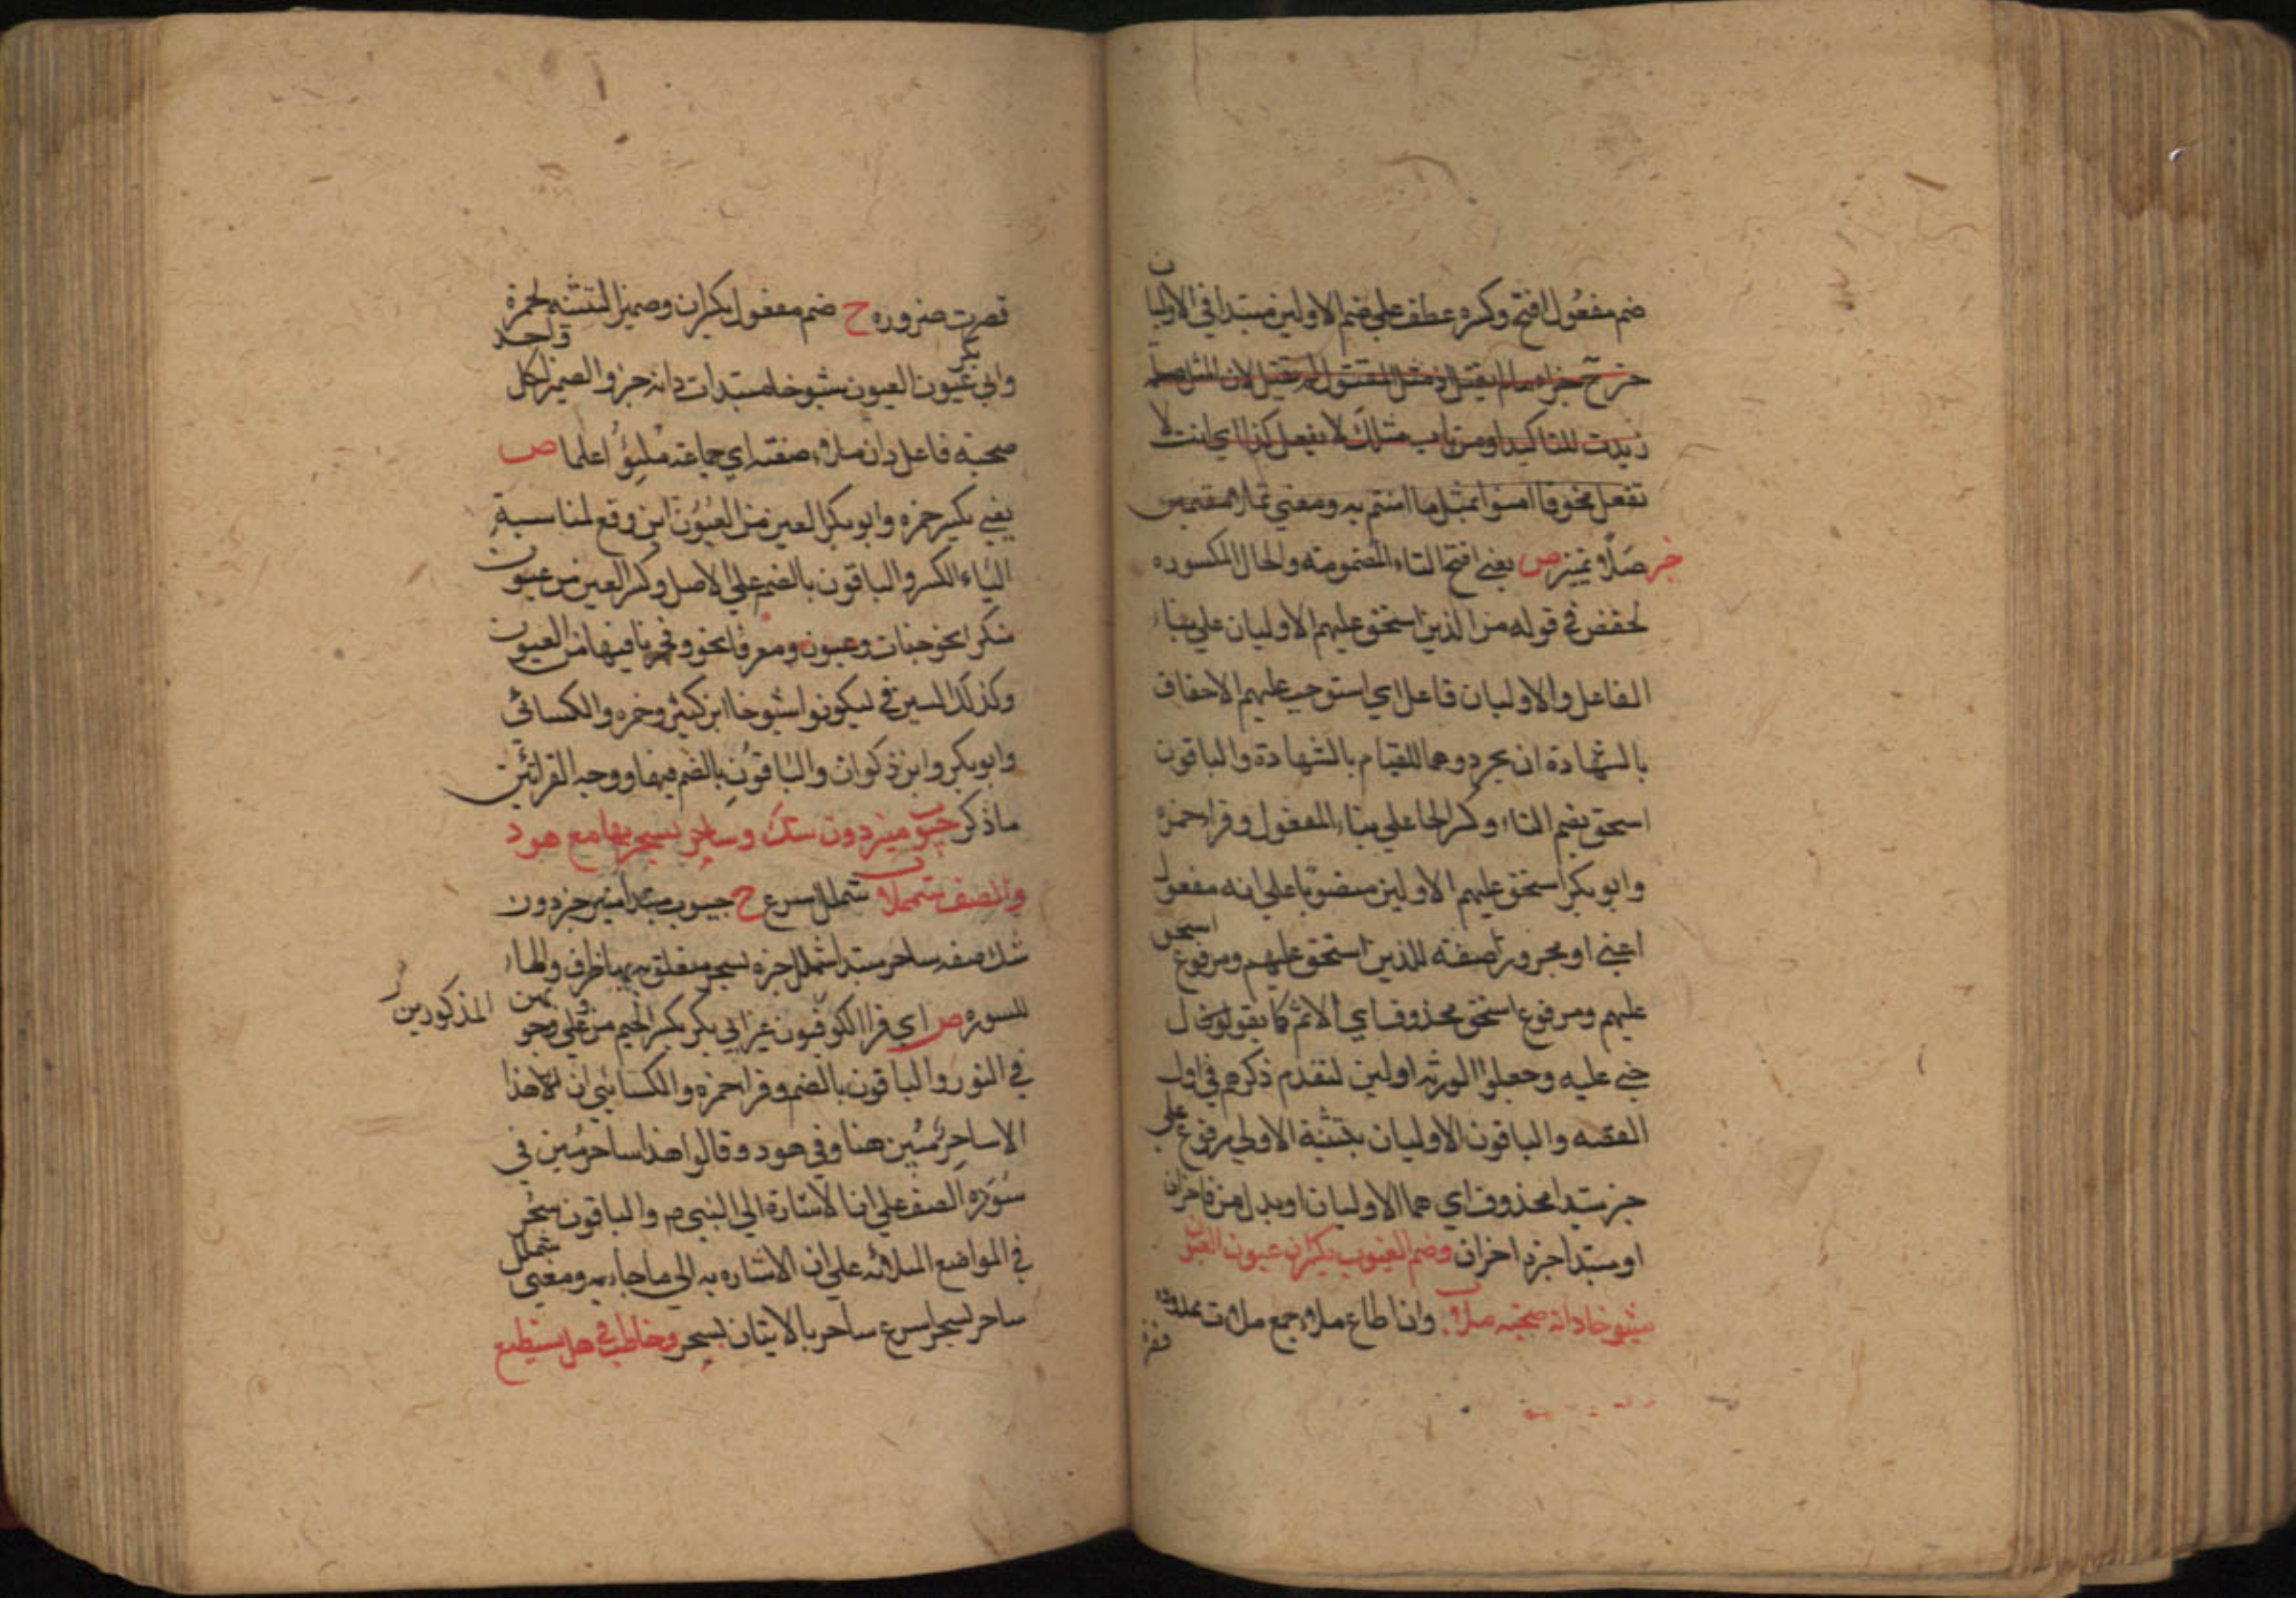 ضم مفعول افتح وكسره عطف على ضم الاولين مبتدا في الاوليان
خبر ح جزاء ما لم يقتل اذ مثل المقتول لم يقتل لان المثل صلة
زيدت للتاكيد او من باب مثلك لا يفعل كذا اي انت لا
تفعل نحو فا امنوا بمثل ما امنتم به ومعنى
خبر صلا تميز ص يعني افتح التاء المضمومة والحا المكسوره
لحفص في قوله من الذين استحق عليهم الاوليان على بناء
الفاعل والاوليان فاعل اي استوجب عليهم الاحقاف
بالشهادة ان يجردوهما للقيام بالشهادة والباقون
استحق بضم التاء وكسر الحا على بناء المفعول وقرا حمزه
وابو بكر استحق عليهم الاولين منصوبا على انه مفعول
اعني او مجرور صفته للذين استحق عليهم ومرفوع استحق
عليهم ومرفوع استحق محذوف اي الاثم كما يقولون
جني عليه وجعلوا الورثه اولين لتقدم ذكرهم في اول
القصه والباقون الاوليان بتثنية الاولى مرفوع على
خبر مبتدا محذوف اي هما الاوليان او بدل من فاخران
او مبتدا خبره اخران وضم الغيوب يكسران عيون العيون
شيوخا دانه صحبه ملا وان اطاع ملا جمع ملات ممدوده
فقر
قصرت ضروره ح ضم مفعول يكسران وضمير التثنيه لحمزة
وابي بكر عيون العيون شيوخا مبتدات دانه خبر والضمير لكل واحد
صحبة فاعل دان ملا صفته اي جماعة مليؤ اعلما ص
يعني يكسر حمزه وابو بكر العين من العيون اين وقع لمناسبة
الياء الكسر والباقون بالضم على الاصل وكسر العين من عيون
منكرا نحو جنات وعيون ومعرفا نحو وفجرنا فيها من العيون
وكذلك السين في ليكونوا شيوخا ابن كثير وحمزه والكسائي
وابو بكر وابن ذكوان والباقون بالضم فيها ووجه القرائتين
ماذكر جيوب منير دون شك وساحر بسحر بها مع هود
والصف شمللا شملل اسرع ح جيوب مبتدا منير خبر دون
شك صفه ساحر مبتدا شملل خبره بسحر متعلق به بها ظرف والهاء
للسوره ص اي قرا الكوفيون غير ابي بكر بكسر الجيم من على جيوبهن المذكور من
في النور والباقون بالضم وقرا حمزه والكسائي ان هذا
الا ساحر مبين هنا وفي هود وقالوا هذا ساحر مبين في
سورة الصف على ان الاشارة الى النبي م والباقون سحر
في المواضع الثلاثه على ان الاشاره به الى ما جاء به ومعنى شملل
ساحر بسحر اسرع ساحر بالاتيان بسحر وخاطب في هل يستطيع